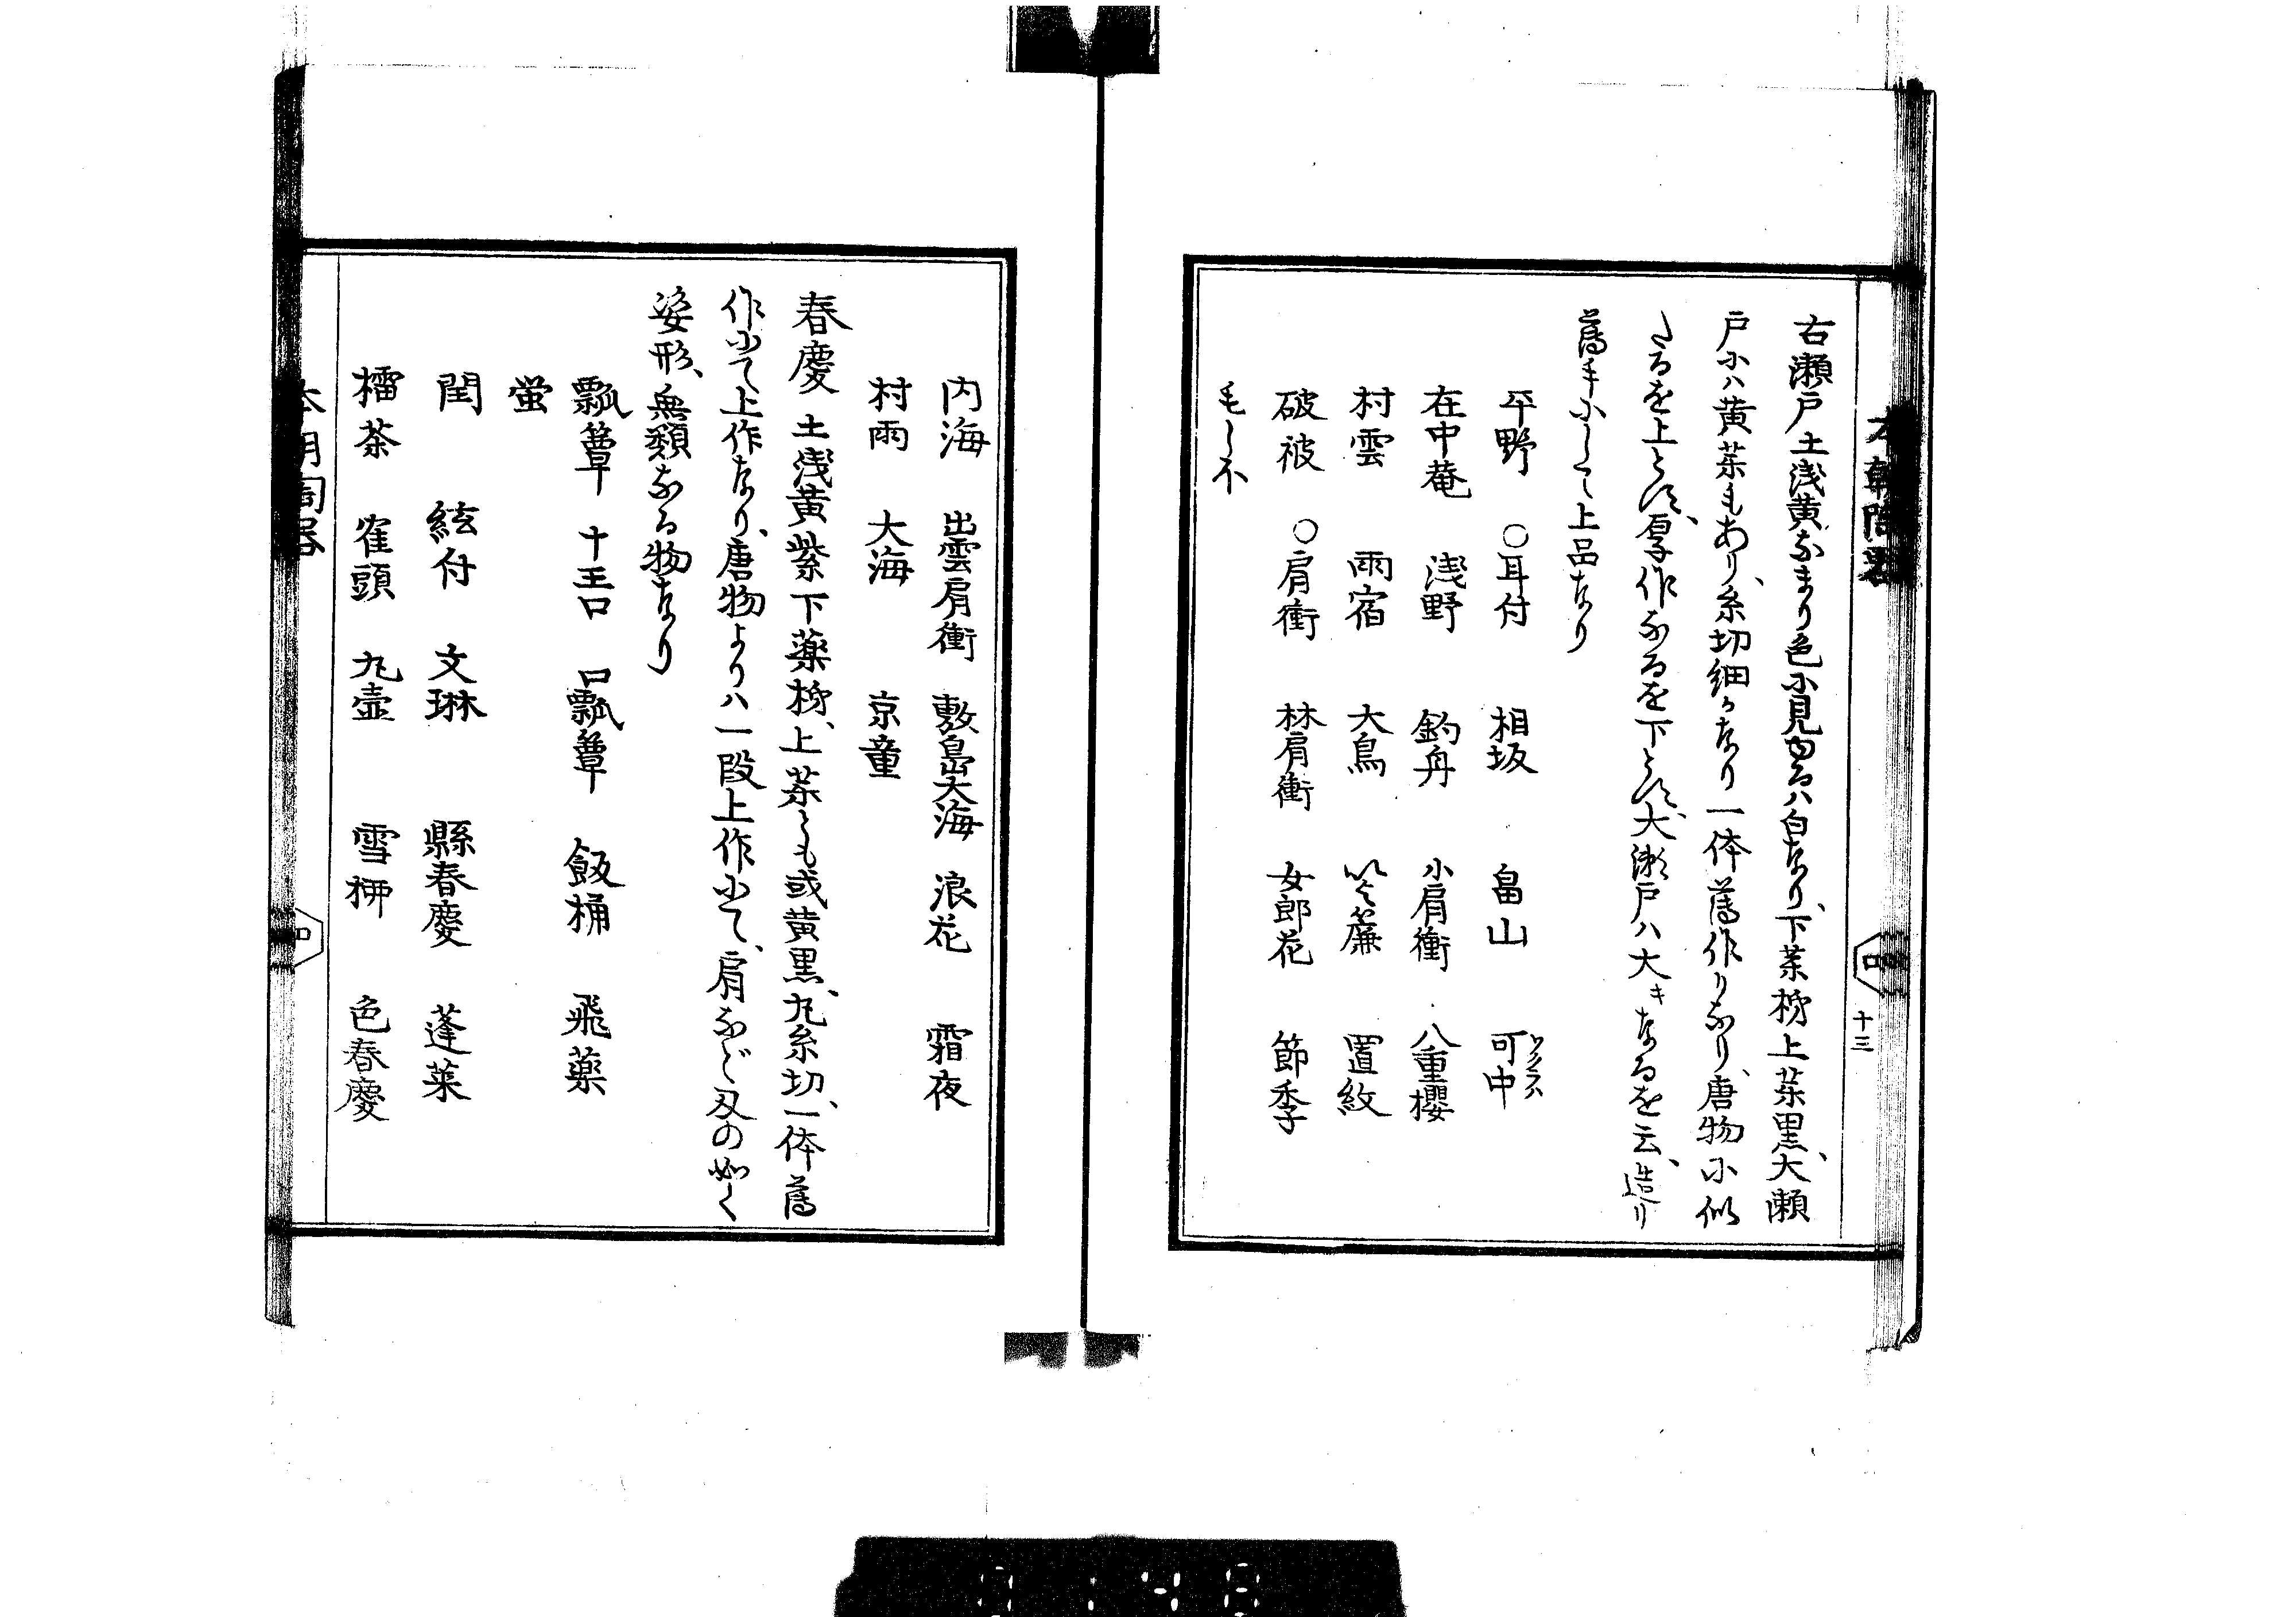 右瀬戸土浅黄なまり色に見ゆるハ白なり、下茶柹上茶黒、大瀬
戸にハ黄茶もあり、糸切細かなり一体薄作りなり、唐物に似
たるを上とす、厚作なるを下とす、大瀬戸ハ大キなるを云、造り
薄手にして上品なり
平野 〇耳付 相坂 畠山 可中
在中庵 浅野 釣舟 小肩衝 八重櫻
村雲 雨宿 大鳥 いよ簾 置紋
破被 〇肩衝 林肩衝 女郎花 節季
もし不
十三
内海 出雲肩衝 敷島大海 浪花 霜夜
村雨 大海 京童
春慶 土浅黄紫下薬柹、上茶とも或黄黒、丸糸切、一体薄
作にて上作なり、唐物よりハ一段上作にて、肩など刃の如く
姿形、無類なる物なり
瓢箪 十王口 口瓢箪 飯桶 飛薬
蛍
閏 絃付 文琳 縣春慶 蓬莱
擂茶 隺頭 丸壷 雪柳 色春慶
本朝陶器